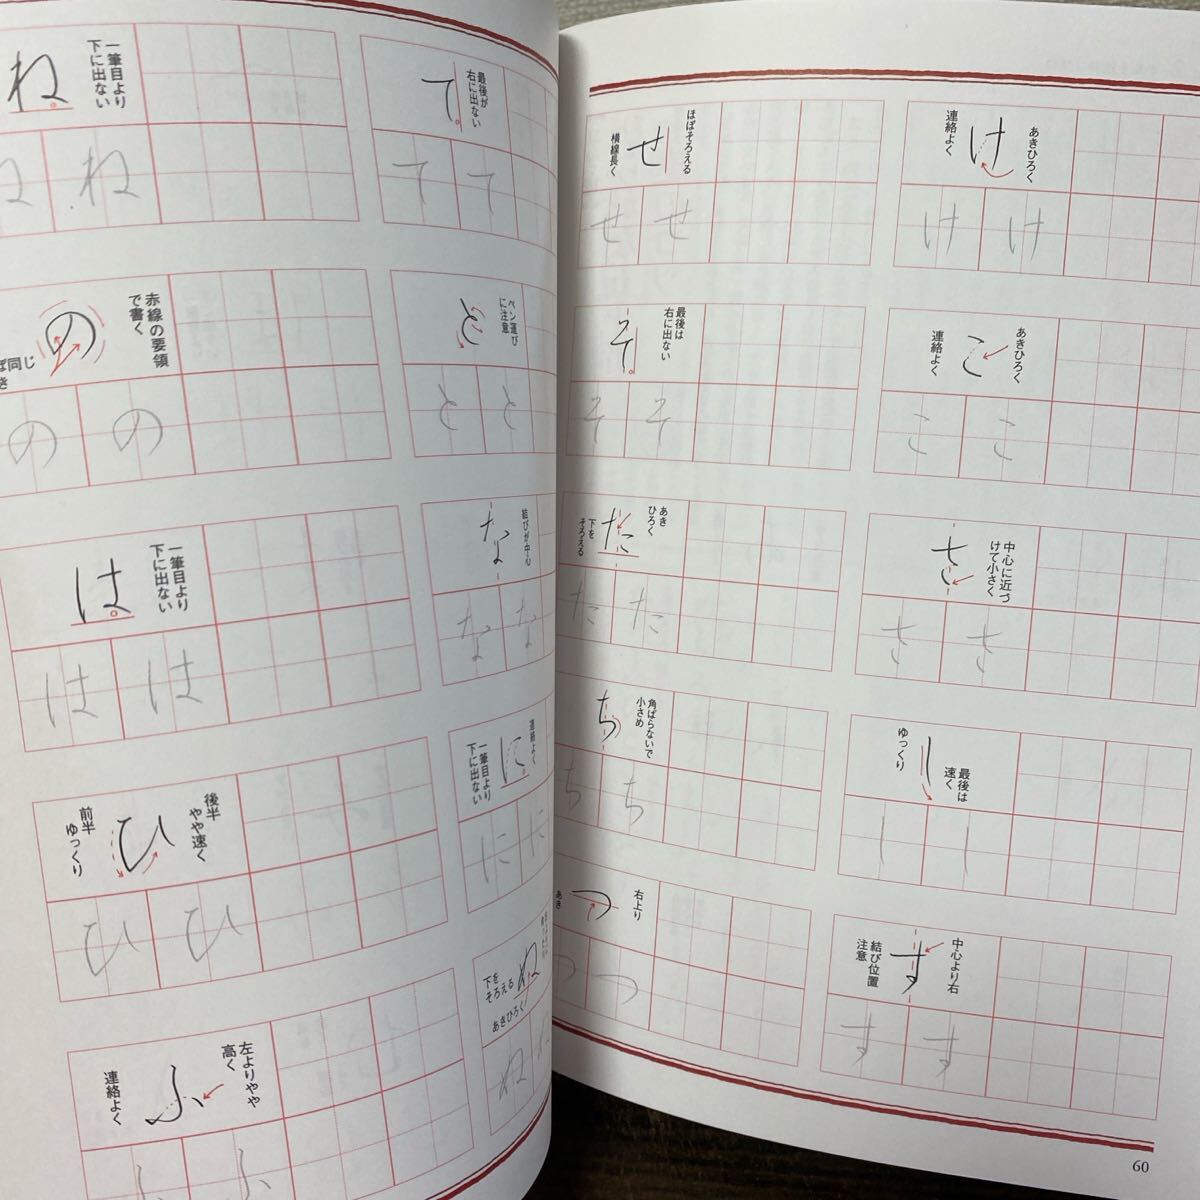 け
あきひろく
連絡よく
け
け
こ
あきひろく
連絡よく
こ
こ
さ
中心に近づ
けて小さく
さ
さ
し
最後は
速く
ゆっくり
し
し
す
中心より右
結び位置
注意
す
す
せ
ほぼそろえる
横線長く
せ
せ
そ
最後は
右に出ない
そ
そ
た
あき
ひろく
下を
そろえる
た
た
ち
角ばらないで
小さめ
ち
ち
つ
右上り
あき
つ
つ
60
て
最後が
右に出ない
て
て
と
ペン運び
に注意
と
と
な
結びが中心
な
な
に
連絡よく
一筆目より
下に出ない
に
に
ぬ
下を
そろえる
あきひろく
ぬ
ね
一筆目より
下に出ない
ね
ね
の
赤線の要領
で書く
ぼ同じ
き
の
の
は
一筆目より
下に出ない
は
は
ひ
後半
やや速く
前半
ゆっくり
ひ
ひ
ふ
左よりやや
高く
連絡よく
ふ
ふ